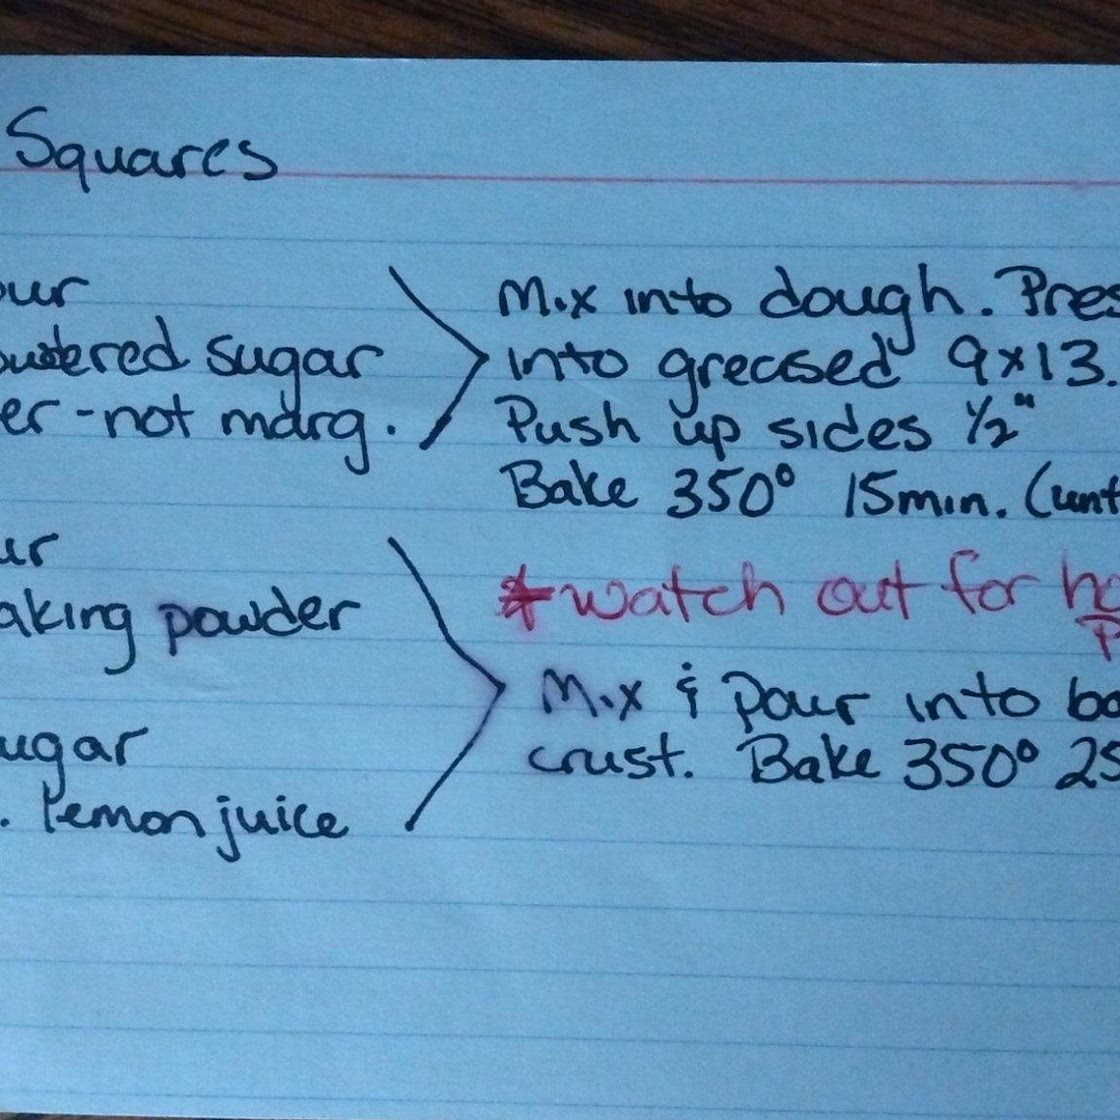 Squares
our
owdered sugar
er - not marg.
Mix into dough. Pres
into greased 9x13.
Push up sides 1/2"
Bake 350° 15min. (unt
ur
aking powder
ugar
. lemon juice
* watch out for ho
P
Mix & pour into ba
crust. Bake 350° 25